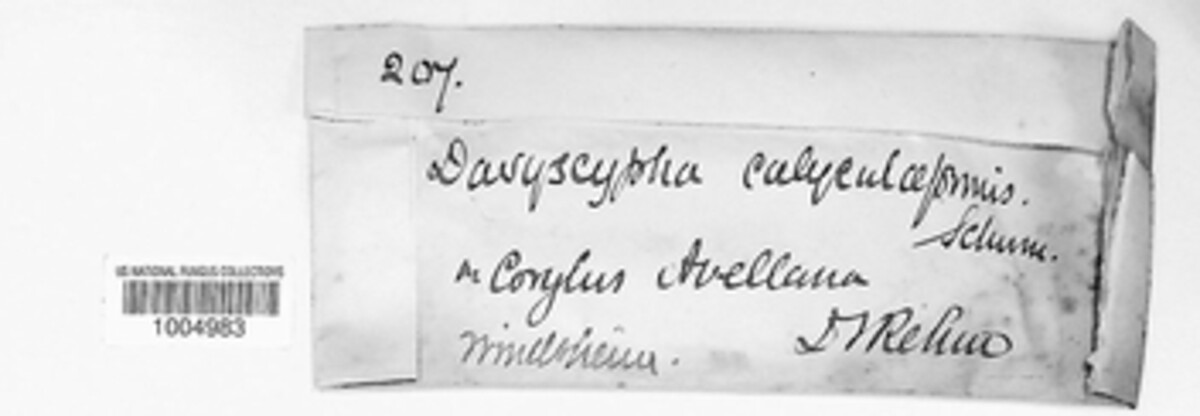 207.
Dasyscypha calyculæformis.
Schum.
on Corylus Avellana
Windsheim.
Dr Rehm
US NATIONAL FUNGUS COLLECTIONS
1004983